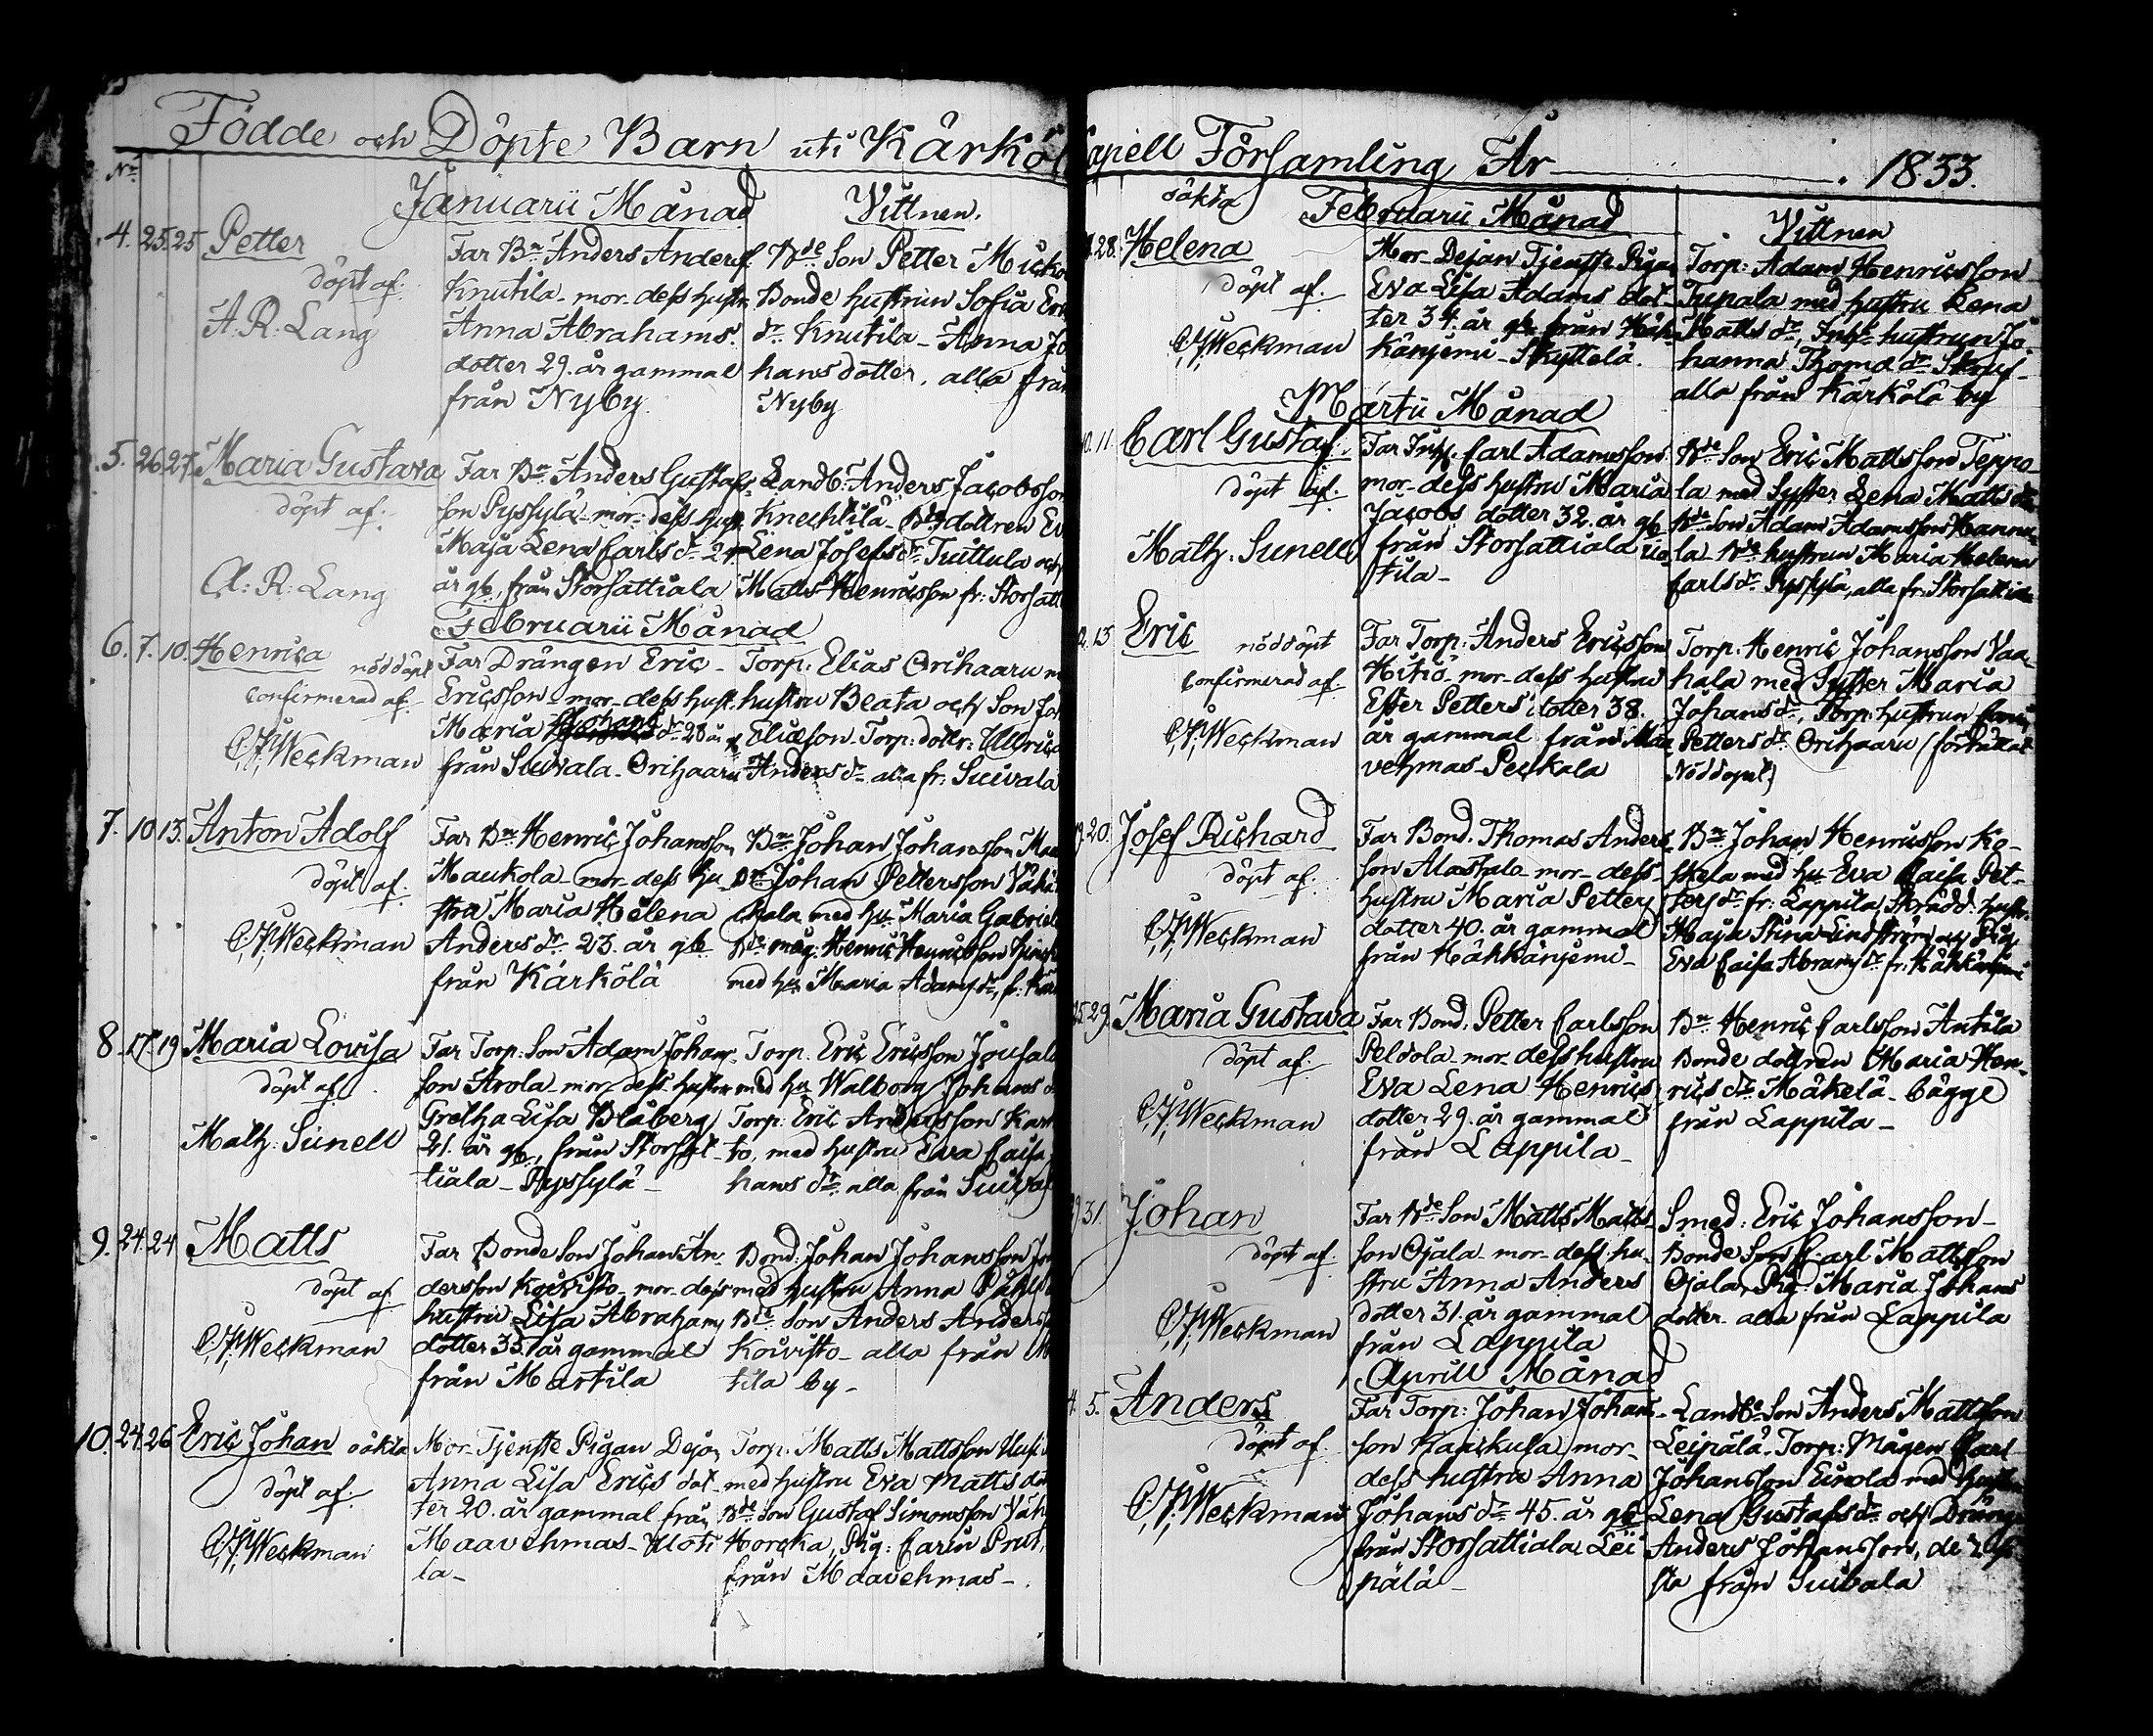 Födde och Döpte Barn uti Kärkö
No
Januarii Månad Vittnen.
4. 25. 25 Petter
döpt af.
A. R. Lang
Far Bn Anders Anders
Knutila mor dess hustr
Anna Abrahams
dotter 29. år gammal
från Nyby
Bde Son Petter
Bonde hustrun Sofia
dr Knutila Anna Jo
hans dotter, alla från
Nyby
5. 26. 27. Maria Gustava
döpt af.
A. R. Lang
Far Bn Anders Gustafs
son Pyssylä mor dess hust
Maja Lena Carls dr 24
år gl. från Storsattiala
Landb. Anders Jacobsson
Knechtilä Bde dottren
Lena Josefs dr Tuittula och
Matts Henricsson fr. Storsatt
Februarii Månad
6. 7. 10. Henrica nöddöpt
Confirmerad af.
C. J. Weckman
Far Drängen Eric
Ericsson mor dess hust.
Maria Johans dr 28 år
från Suivala Orihaaru
Torp. Elias Orihaaru
hustru Beata och Son
Eliæson Torp. dottr. Ulrica
Anders dr alla fr. Suivala
7. 10. 13. Anton Adolf
döpt af.
C. J. Weckman
Far Bn Henric Johansson
Maukola mor dess hu
stru Maria Helena
Anders dr 23. år gl
från Kärkölä
Bn Johan Johansson
Bn Johan Pettersson
med hu Maria Gabriel
Bde måg. Henric Henricsson
med hu Maria Adams dr, fr. Kär
8. 17. 19 Maria Lovisa
döpt af.
Math: Sunell
Far Torp. Son Adam Johans
son Arola mor dess hustru
Gretha Lisa Blåberg
21. år gl., från Storsat
tiala Pyssylä
Torp. Eric Ericsson
med hu Walborg Johans
Torp. Eric Andersson
to, med hustru Eva Caisa
hans dr alla från Suival
9. 24. 24 Matts
döpt af
C. J. Weckman
Far Bonde Son Johan An
dersson Koivisto mor dess
hustru Lisa Abrahams
dotter 33. år gammal
från Martila
Bond. Johan Johansson
med hustru Anna
Bde Son Anders Anders
Koivisto alla från
tila by
10. 24. 26 Eric Johan oäkta
döpt af.
C. J. Weckman
Mor Tjenste Pigan Dejan
Anna Lisa Erics dot
ter 20. år gammal från
Maavehmas Uoti
la
Torp. Matts Mattsson
med hustru Eva Matts
Bde Son Gustaf Simonsson
Horcka, Pig: Carin
från Maavehmas
Capell Församling År 1833.
oäkta Februarii Månad Vittnen
28. Helena
döpt af.
C. J. Weckman
Mor Dejan Tjenste Pigan
Eva Lisa Adams dot
ter 34. år gl från Häh
känjemi Skyttelä.
Torp: Adam Henricsson
Tupala med hustru Lena
Matts dr, Inh. hustrun Jo
hanna Thoma dr
alla från Kärkölä by
Martii Månad
10. 11. Carl Gustaf
döpt af.
Math: Sunell
Far Inh. Carl Adamsson
mor dess hustru Maria
Jacobs dotter 32. år gl
från Storsattiala
tila
Bde Son Eric Mattsson Teppo
la med Syster Lena Matts dr
Bde Son Adam Adamsson Hannu
la Bde hustrun Maria Helena
Carls dr Pyssylä, alla fr. Storsattiala
12. 13 Eric nöddöpt
Confirmerad af.
C. J. Weckman
Far Torp: Anders Ericsson
Hitiö mor dess hustru
Ester Petters dotter 38.
år gammal från Maa
vehmas Peckala
Torp. Henric Johansson Vaa
hala med Syster Maria
Johans dr, Torp: hustrun
Petters dr Orihaaru (förrättat
Nöddopet)
19. 20. Josef Richard
döpt af.
C. J. Weckman
Far Bond. Thomas Anders
son Alastalo mor dess
hustru Maria Petters
dotter 40. år gammal
från Hähkänjemi
Bn Johan Henricsson Ko
skela med hu Eva Caisa Pet
ters dr fr. Lappila, Skrädd. hustr.
Maja Stina Lindström och Pig.
Eva Caisa Abrams dr fr. Hähkänjemi
25. 29. Maria Gustava
döpt af.
C. J. Weckman
Far Bond. Petter Carlsson
Peldola mor dess hustru
Eva Lena Henrics
dotter 29. år gammal
från Lappila
Bn Henric Carlsson Antila
Bonde dottren Maria Hen
rics dr Mäkelä bägge
från Lappila
31. Johan
döpt af.
C. J. Weckman
Far Bde Son Matts Matts
son Ojala mor dess hu
stru Anna Anders
dotter 31. år gammal
från Lappila
Smed. Eric Johansson
Bonde Son Carl Mattsson
Ojala, Pig. Maria Johans
dotter alla från Lappila
Aprill Månad
4. 5. Anders
döpt af.
C. J. Weckman
Far Torp: Johan Johans
son Kaickula mor
dess hustru Anna
Johans dr 45. år gl
från Storsattiala Lei
pälä
Landb. Son Anders Mattsson
Leipälä Torp: Mågen Carl
Johansson Eurola med hustru
Lena Gustafs dr och Dräng
Anders Johansson, de 2
sta från Suivala